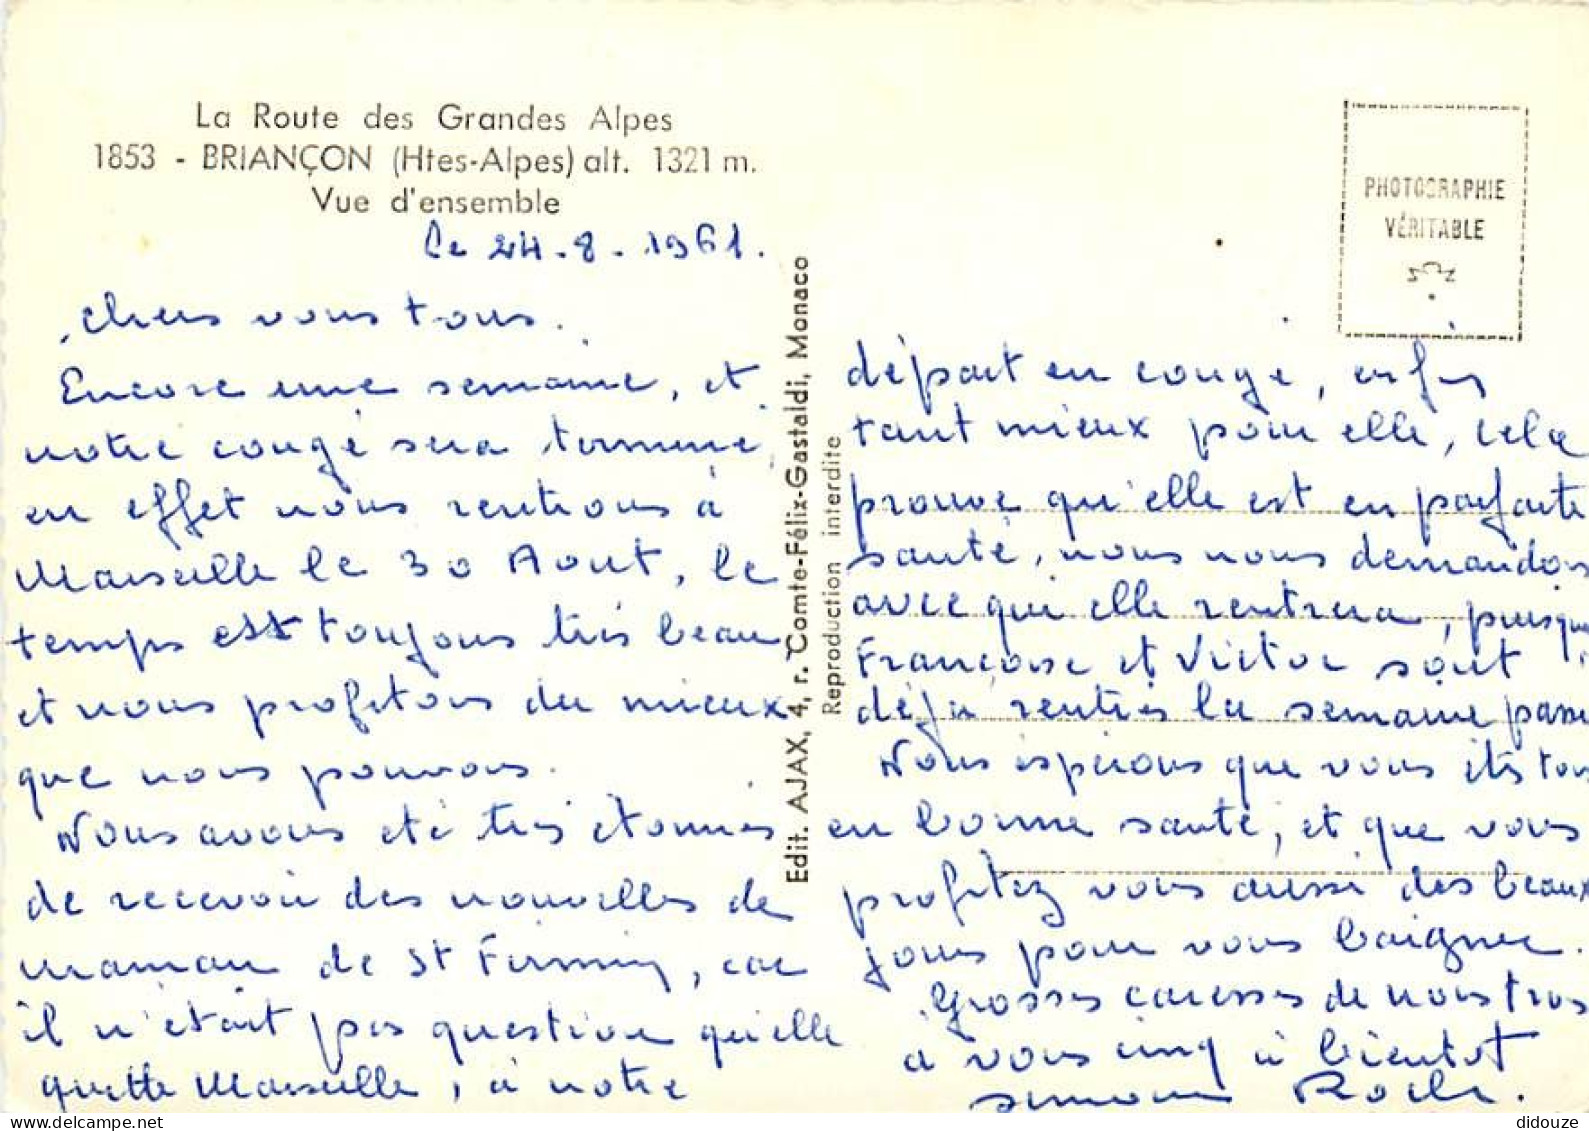 La Route des Grandes Alpes
1853 - BRIANÇON (Htes-Alpes) alt. 1321 m.
Vue d'ensemble
Le 24-8-1961.
chers vous tous.
Encore une semaine, et
notre congé sera terminé,
en effet nous rentrons à
Marseille le 30 Aout, le
temps est toujours très beau
et nous profitons du mieux
que nous pouvons.
Nous avons été très étonnés
de recevoir des nouvelles de
maman de St Firmin, car
il n'était pas question qu'elle
quitte Marseille, à notre
Edit. AJAX, 4, r. Comte-Félix-Gastaldi, Monaco
Reproduction interdite
PHOTOGRAPHIE
VÉRITABLE
départ en congé, enfin
tant mieux pour elle, cela
prouve qu'elle est en parfaite
santé, nous nous demandons
avec qui elle rentrera, puisque
Françoise et Victor sont
déjà rentrés la semaine passée
Nous espérons que vous êtes tous
en bonne santé, et que vous
profitez vous aussi des beaux
jours pour vous baigner.
Grosses caresses de nous trois
a vous cinq à bientot
Simone Roch.
didouze